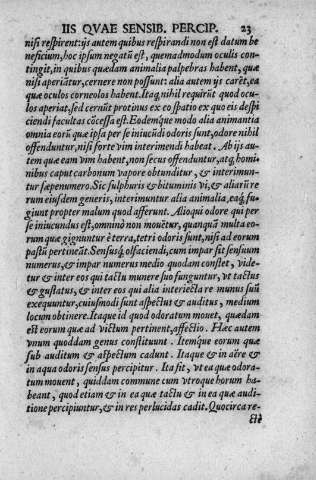 IIS QVAE SENSIB. PERCIP. 23
nisi respirent: ijs autem quibus respirandi non est datum be
neficium, hoc ipsum negatũ est, quemadmodum oculis con
tingit, in quibus quædam animalia palpebras habent, quæ
nisi aperiātur, cernere non possunt: alia autem ijs carēt, ea
quæ oculos corneolos habent. Itaq; nihil requirūt quod ocu
los aperiat, sed cernūt protinus ex eo spatio ex quo eis despi
ciendi facultas cōcessa est. Eodemq́ue modo alia animantia
omnia eorū quæ ipsa per se iniucūdi odoris sunt, odore nihil
offenduntur, nisi forte vim interimendi habeat. Ab ijs au-
tem quæ eam vim habent, non secus offenduntur, atq; homi
nibus caput carbonum vapore obtunditur, & interimun-
tur sæpenumero. Sic sulphuris & bituminis vi, & aliarū re
rum eiusdem generis, interimuntur alia animalia, eaq́; fu-
giunt propter malum quod afferunt. Alioqui odore qui per
se iniucundus est, omninò non mouētur, quanquā multa eo-
rum quæ gignuntur è terra, tetri odoris sunt, nisi ad eorum
pastū pertineāt. Sensusq́; olfaciendi, cum impar sit sensuum
numerus, & impar numerus medio quodam constet, vide-
tur & inter eos qui tactu munere suo funguntur, vt tactus
& gustatus, & inter eos qui alia interiecta re munus suū
exequuntur, cuiusmodi sunt aspectus & auditus, medium
locum obtinere. Itaque id quod odoratum mouet, quædam
est eorum quæ ad victum pertinent, affectio. Hæc autem
vnum quoddam genus constituunt. Itemq́ue eorum quæ
sub auditum & aspectum cadunt. Itaque & in aëre &
in aqua odoris sensus percipitur. Ita fit, vt ea quæ odora-
tum mouent, quiddam commune cum vtroque horum ha-
beant, quod etiam & in ea quæ tactu & in ea quæ audi-
tione percipiuntur, & in res perlucidas cadit. Quocirca re-
ctè